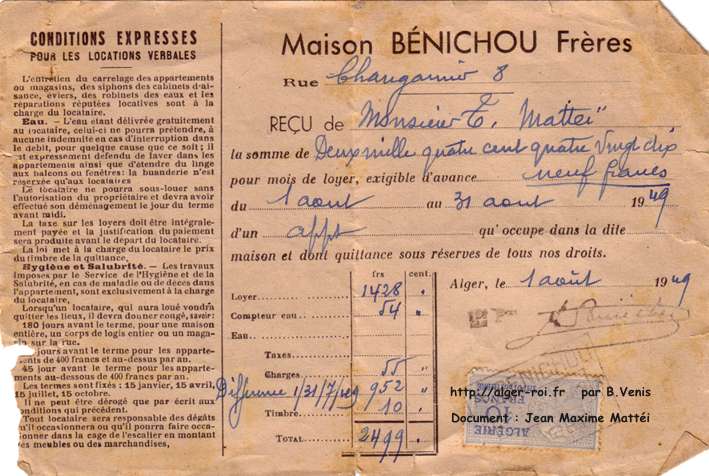 CONDITIONS EXPRESSES
POUR LES LOCATIONS VERBALES
L'entretien du carrelage des appartements
ou magasins, des siphons des cabinets d'ai-
sance, éviers, des robinets des eaux et les
réparations réputées locatives sont à la
charge du locataire.
Eau. — L'eau étant délivrée gratuitement
au locataire, celui-ci ne pourra prétendre, à
aucune indemnité en cas d'interruption dans le
débit, pour quelque cause que ce soit ; il
est expressement défendu de laver dans les
appartements ainsi que d'étendre du linge
aux balcons ou fenêtres: la buanderie n'est
réservée qu'aux locataires
Le locataire ne pourra sous-louer sans
l'autorisation du propriétaire et devra avoir
effectué son déménagement le jour du terme
avant midi.
La taxe sur les loyers doit être intégrale-
ment payée et la justification du paiement
sera produite avant le départ du locataire.
La loi met à la charge du locataire le prix
du timbre de la quittance.
Hygiène et Salubrité. — Les travaux
imposés par le Service de l'Hygiène et de la
Salubrité, en cas de maladie ou de décès dans
l'appartement, sont exclusivement à la charge
du locataire,
Lorsqu'un locataire, qui aura loué voudra
quitter les lieux, il devra donner congé, savoir:
180 jours avant le terme, pour une maison
entière, un corps de logis entier ou un maga-
sin sur la rue.
jours avant le terme pour les apparte-
ments de 400 francs et au-dessus par an.
45 jour avant le terme pour les apparte-
ments au-dessous de 400 francs par an.
Les termes sont fixés : 15 janvier, 15 avril,
15 juillet, 15 octobre.
Il ne peut être dérogé que par écrit aux
conditions qui précèdent.
Tout locataire sera responsable des dégâts
qu'il occasionnera ou qu'il pourra faire occa-
sionner dans la cage de l'escalier en montant
ses meubles ou des marchandises.
Maison BÉNICHOU Frères
Rue Changarnier 8
REÇU de Monsieur E. Matteï
la somme de Deux mille quatre cent quatre vingt dix
pour mois de loyer, exigible d'avance neuf francs
du 1 août au 31 août 1949
d'un appt qu'occupe dans la dite
maison et dont quittance sous réserves de tous nos droits.
Alger, le 1 août 1949
frs cent.
Loyer 1428 "
Compteur eau 54 "
Eau
Taxes
Charges 55 "
Différence 1/31/7/49 952 "
Timbre 10 "
Total 2499 "
BÉNICHOU
ALGÉRIE
10
FRANCS
http://alger-roi.fr par B.Venis
Document : Jean Maxime Mattéi